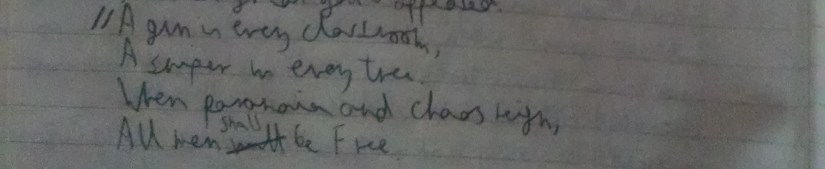 appealed.
"A gun in every classroom,
A sniper in every tree.
When paranoia and chaos reign,
All men shall be Free